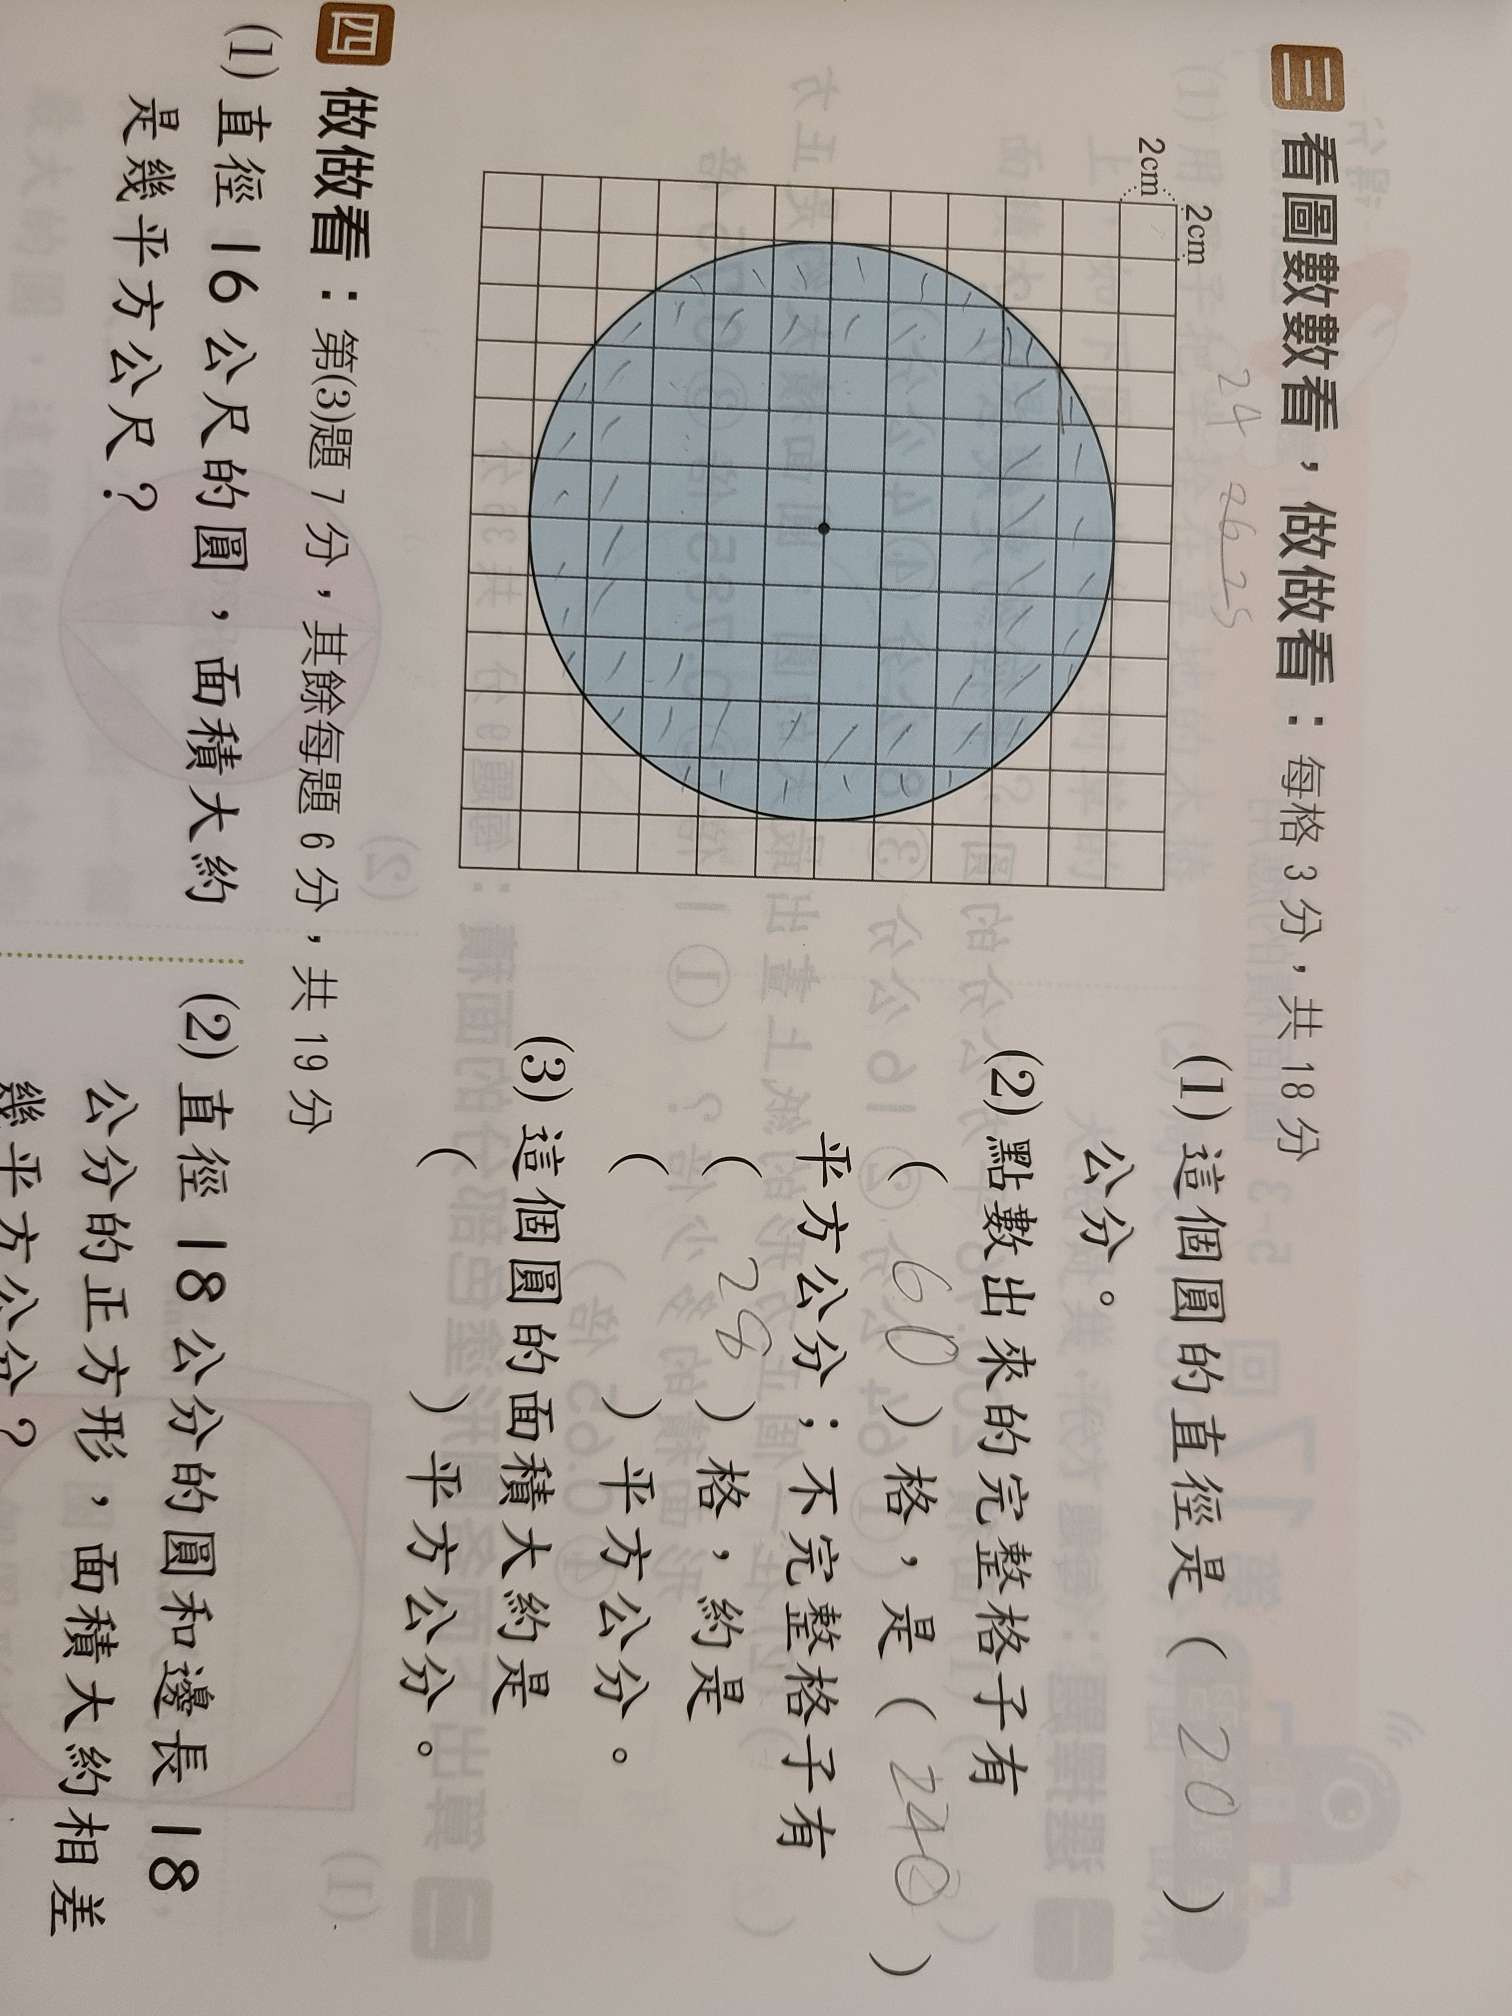 三 看圖數數看，做做看：每格 3 分，共 18 分
2cm
2cm
24 26 25
(1) 這個圓的直徑是（ 20 ）
公分。
(2) 點數出來的完整格子有
（ 60 ）格，是（ 240 ）
平方公分；不完整格子有
（ 28 ）格，約是
（ ）平方公分。
(3) 這個圓的面積大約是
（ ）平方公分。
四 做做看：第(3)題 7 分，其餘每題 6 分，共 19 分
(1) 直徑 16 公尺的圓，面積大約
是幾平方公尺？
(2) 直徑 18 公分的圓和邊長 18
公分的正方形，面積大約相差
幾平方公分？